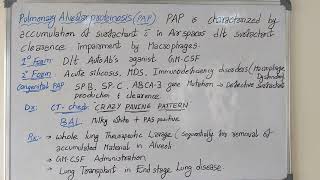 Pulmonary Alveolar proteinosis (PAP) PAP is characterized by
accumulation of surfactant c̄ in Airspaces dlt surfactant
clearence impairment by Macrophages.
1° Form: Dlt AutoAb's against GM-CSF
2° Form: Acute silicosis, MDS, Immunodeficiency disorders (Macrophage Dysfunction)
congenital PAP SP.B, SP-C, ABCA-3 gene Mutation → Defective surfactant
production & clearence
Dx: CT-chest: CRAZY PAVING PATTERN
BAL: Milky white + PAS positive
Rx: - whole lung Therapeutic Lavage (Sequentially for removal of
accumulated Material in Alveoli
- GM-CSF Administration
- Lung Transplant in End stage Lung disease.